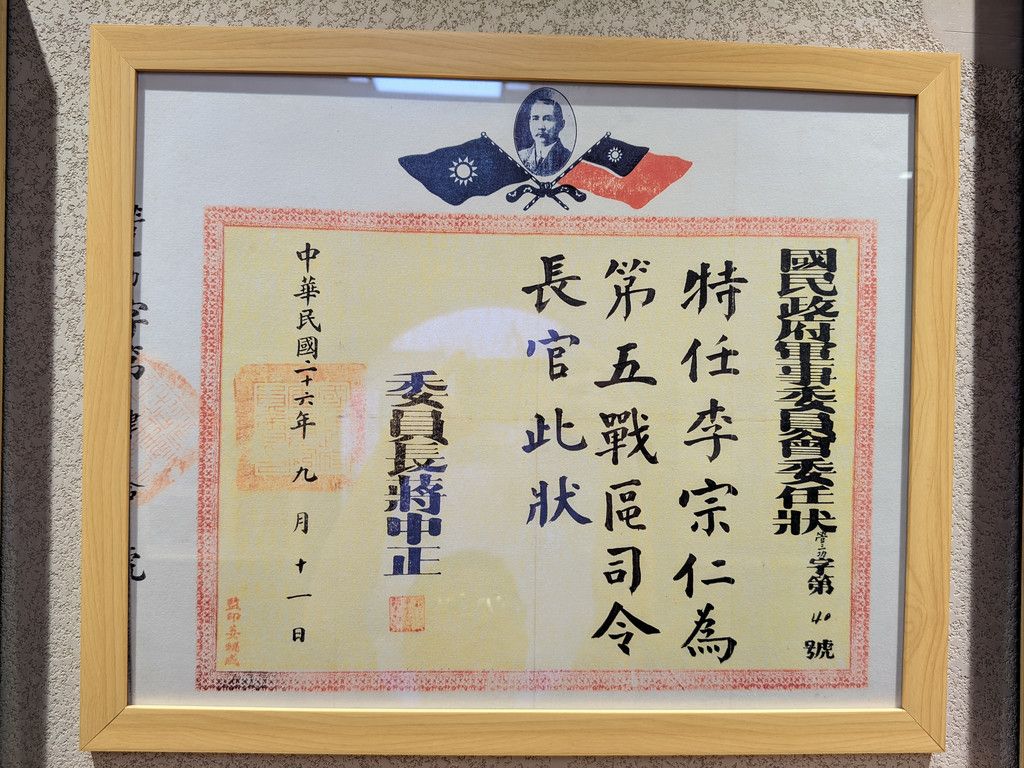 國民政府軍事委員會委任狀
字第40號
特任李宗仁為
第五戰區司令
長官此狀
委員長蔣中正
中華民國二十六年九月十一日